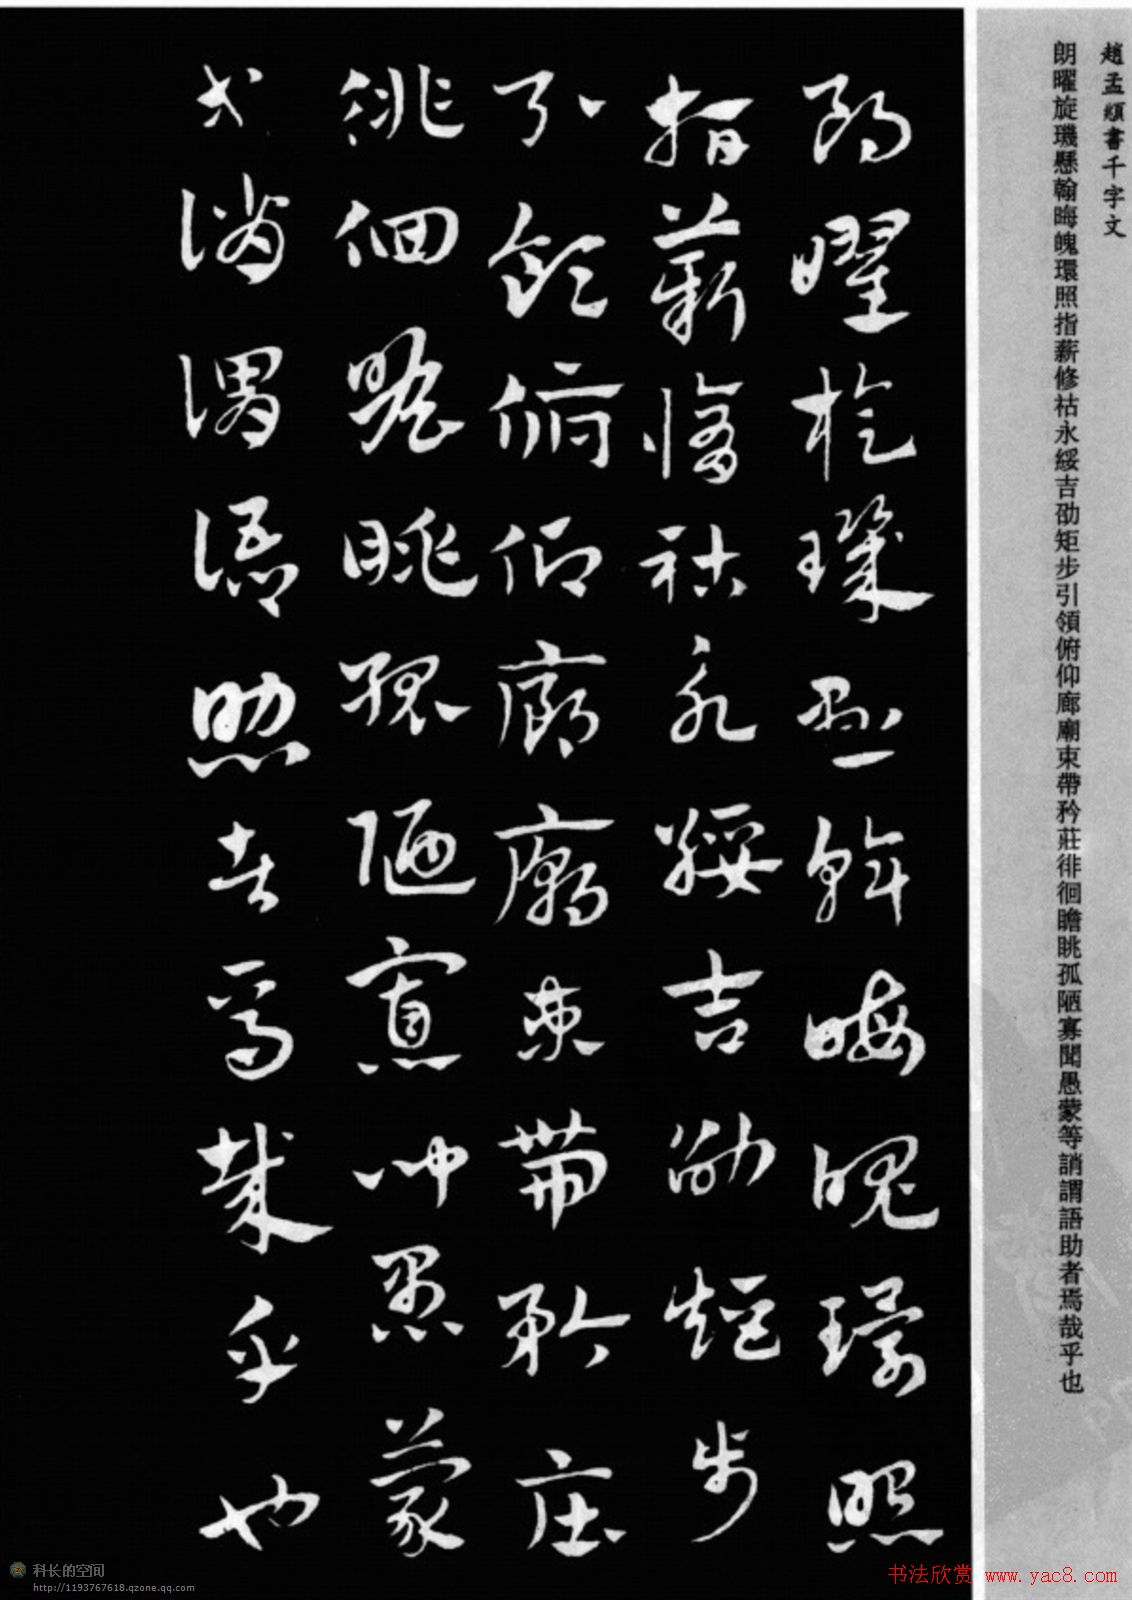 趙孟頫書千字文
朗曜旋璣懸斡晦魄環照指薪修祜永綏吉劭矩步引領俯仰廊廟束帶矜莊徘徊瞻眺孤陋寡聞愚蒙等誚謂語助者焉哉乎也
朗曜旋璣懸斡晦魄環照
指薪修祜永綏吉劭矩步
引領俯仰廊廟束帶矜莊
徘徊瞻眺孤陋寡聞愚蒙
等誚謂語助者焉哉乎也
科长的空间
http://1193767618.qzone.qq.com
书法欣赏 www.yac8.com